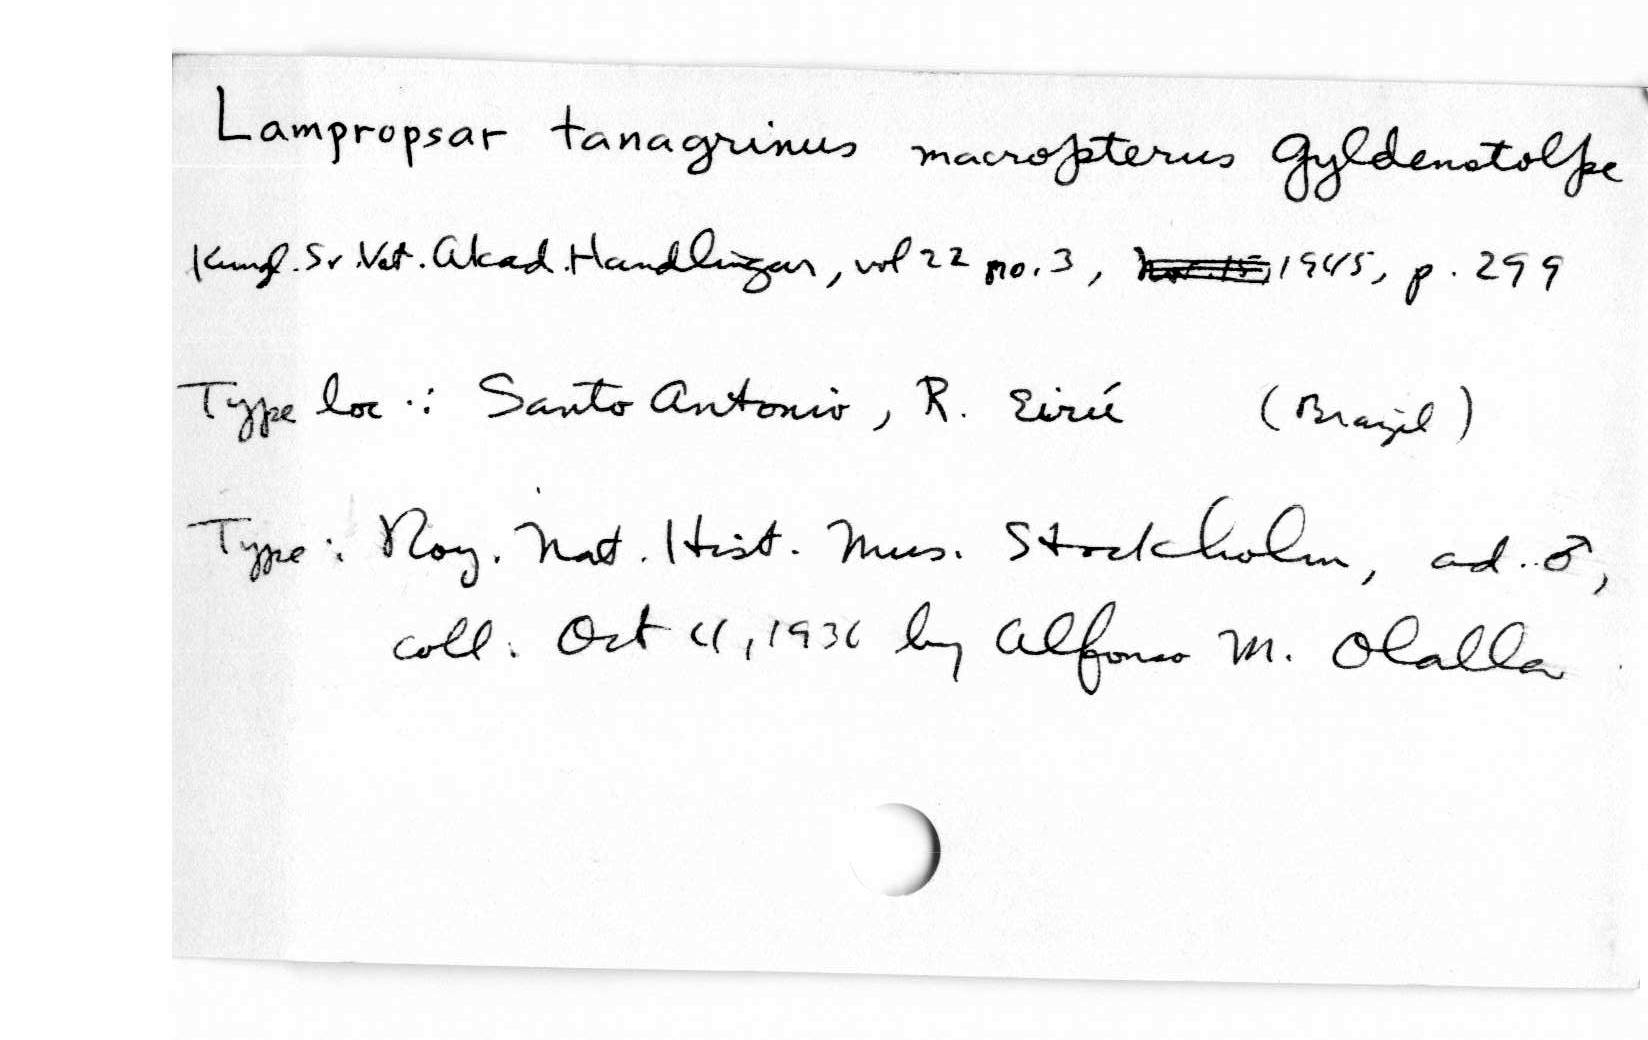 Lampropsar tanagrinus macropterus Gyldenstolpe
Kungl. Sv. Vet. Akad. Handlingar, vol 22 no. 3, 1945, p. 299
Type loc.: Santo Antonio, R. Eirú (Brazil)
Type: Roy. Nat. Hist. Mus. Stockholm, ad. ♂,
coll. Oct 11, 1936 by Alfonso M. Olalla